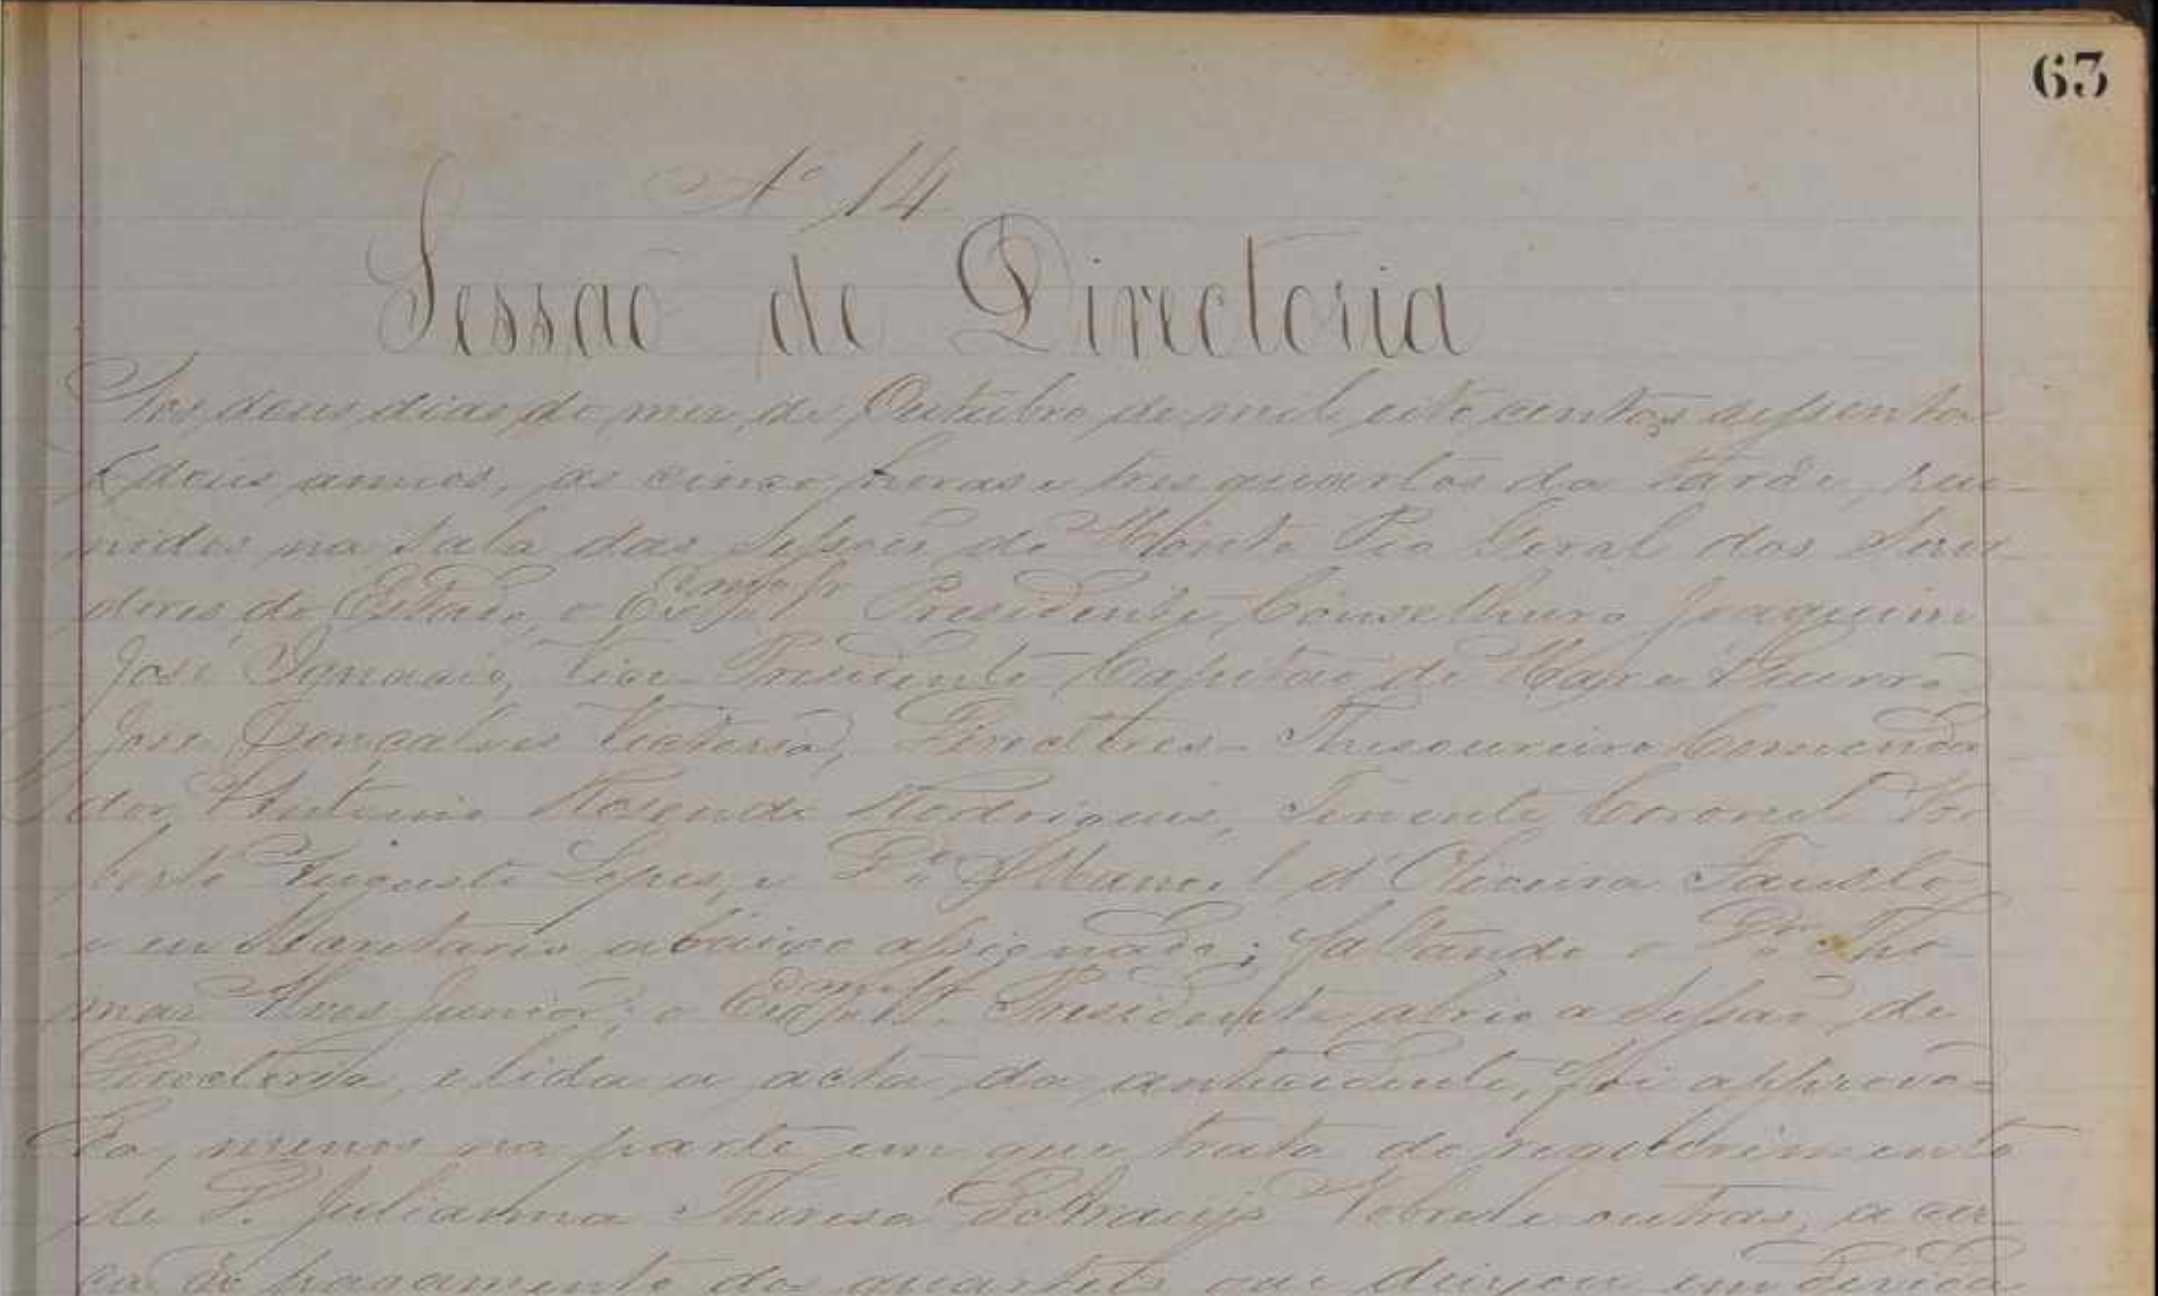 63
Nº 14
Sessão de Directoria
Aos dous dias do mez de Outubro de mil oito centos sessenta
e dous annos, as cinco horas e tres quartos da tarde, reu-
nidos na sala das Sessões do Monte Pio Geral dos Servi-
dores do Estado, o Exmo Sr Presidente, Conselheiro Joaquim
José Ignacio, Vice-Presidente Capitão de Mar e Guerra
José Gonçalves Victoria, Directores - Thesoureiro Comenda
dor Antonio Rosendo Rodrigues, Tenente Coronel Ro
berto Augusto Lopes, e Dr Manoel d'Oliveira Fausto,
e eu Secretario abaixo assignado; faltando o Dr Tho-
maz Alves Junior; o Exmo Sr Presidente abrio a Sessão de
Directoria, e lida a acta da antecedente, foi approva-
da, menos na parte em que trata do requerimento
de D. Julianna Thereza de Araujo e outras, a cer-
ca do pagamento dos quarteis que deixou em divida